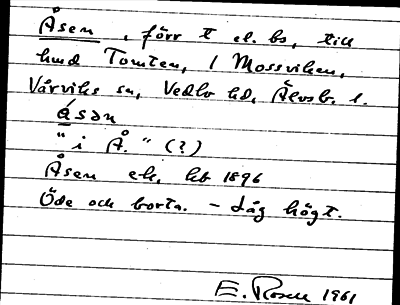 Åsen, förr t el. bs, till
hmd Tomten, i Mossviken,
Vårviks sn, Vedbo hd, Älvsb. l.
åsən
"i Å." (?)
Åsen ek. kb 1896
Öde och borta. - Låg högt.
E. Rosell 1961